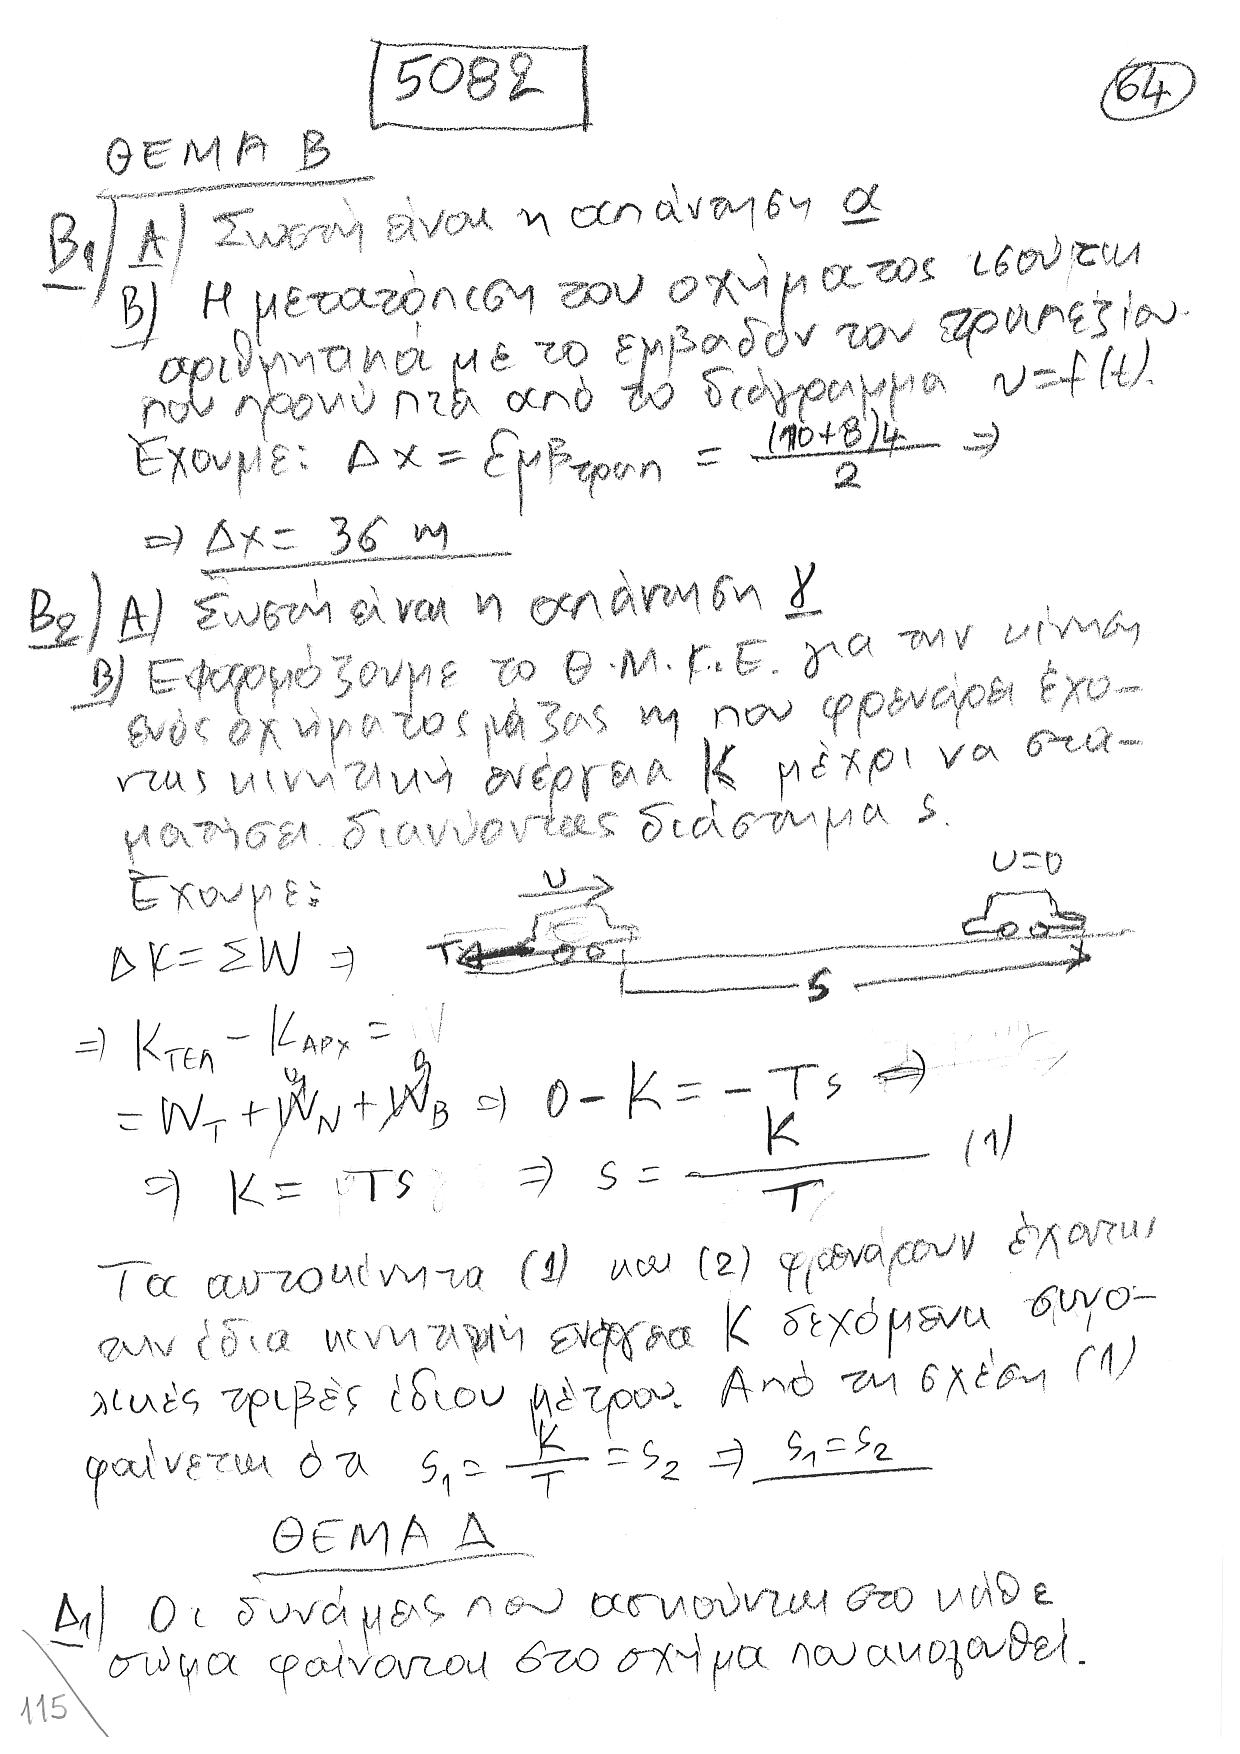 5082
64
ΘΕΜΑ Β
Β1) Α) Σωστή είναι η απάντηση α
Β) Η μετατόπιση του οχήματος ισούται
αριθμητικά με το εμβαδόν του τραπεζίου
που προκύπτει από το διάγραμμα υ=f(t).
Έχουμε: Δx = Εμβτραπ = (10+8)4/2 ⇒
⇒ Δx = 36 m
Β2) Α) Σωστή είναι η απάντηση γ
Β) Εφαρμόζουμε το Θ.Μ.Κ.Ε. για την κίνηση
ενός οχήματος μάζας m που φρενάρει έχο-
ντας κινητική ενέργεια K μέχρι να στα-
ματήσει διανύοντας διάστημα s.
Έχουμε:
υ
υ=0
ΔK = ΣW ⇒
T
s
⇒ KΤΕΛ - KΑΡΧ =
= WT + WN + WB ⇒ 0 - K = - Ts ⇒
0 0
⇒ K = Ts ⇒ s = K/T (1)
Τα αυτοκίνητα (1) και (2) φρενάρουν έχοντας
την ίδια κινητική ενέργεια K δεχόμενα συνο-
λικές τριβές ίδιου μέτρου. Από τη σχέση (1)
φαίνεται ότι s1 = K/T = s2 ⇒ s1 = s2
ΘΕΜΑ Δ
Δ1) Οι δυνάμεις που ασκούνται στο κάθε
σώμα φαίνονται στο σχήμα που ακολουθεί.
115